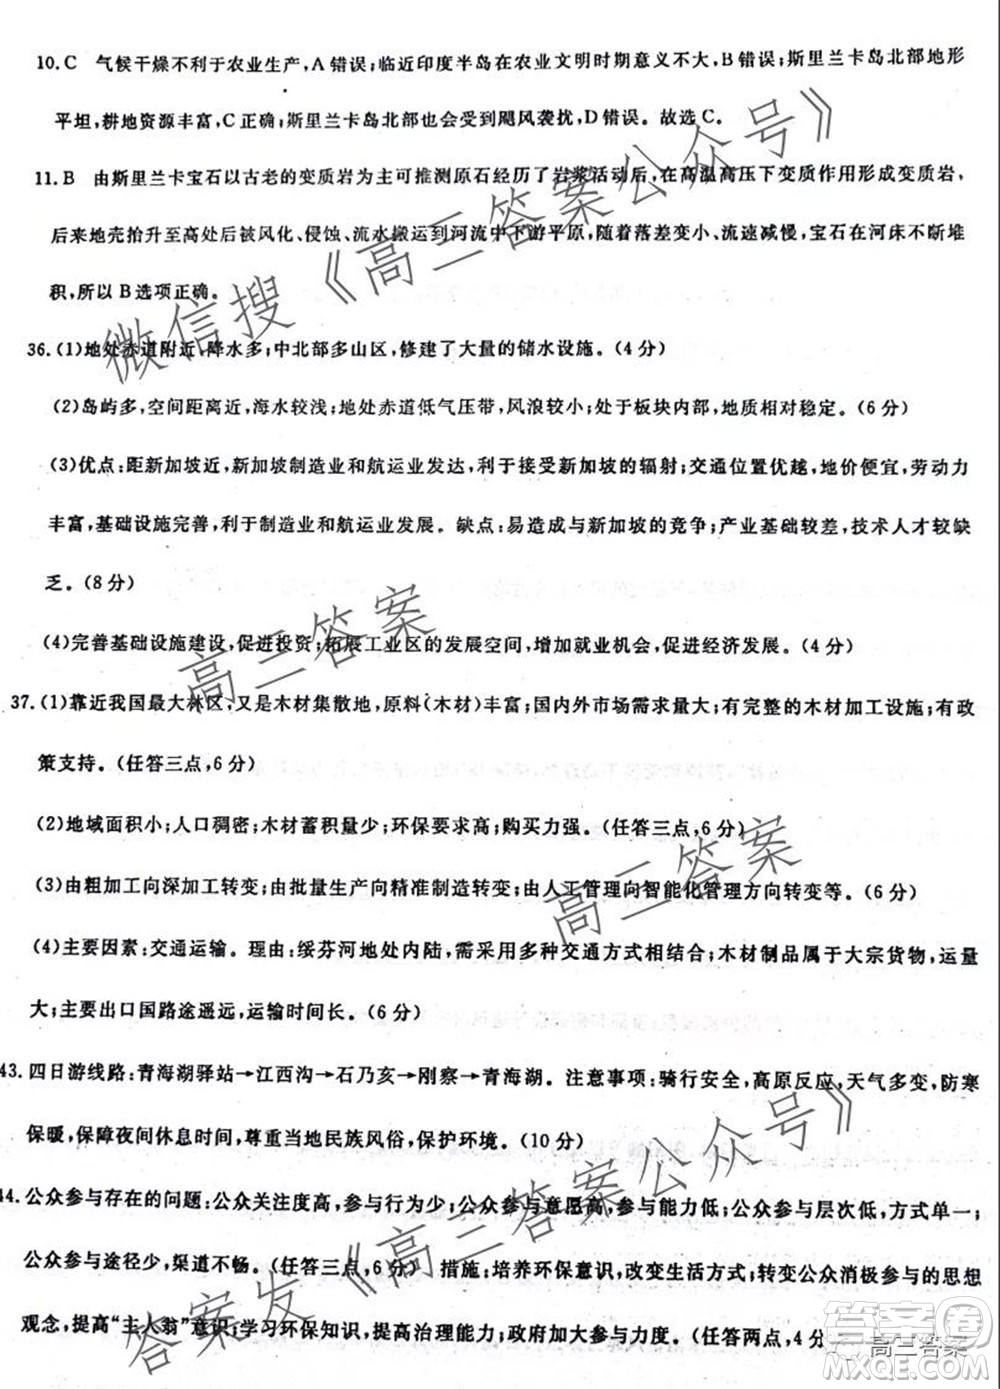 10.C 气候干燥不利于农业生产,A错误;临近印度半岛在农业文明时期意义不大,B错误;斯里兰卡岛北部地形
平坦,耕地资源丰富,C正确;斯里兰卡岛北部也会受到飓风袭扰,D错误。故选C。
11.B 由斯里兰卡宝石以古老的变质岩为主可推测原石经历了岩浆活动后,在高温高压下变质作用形成变质岩,
后来地壳抬升至高处后被风化、侵蚀、流水搬运到河流中下游平原,随着落差变小、流速减慢,宝石在河床不断堆
积,所以B选项正确。
微信搜《高三答案公众号》
36.(1)地处赤道附近,降水多;中北部多山区,修建了大量的储水设施。(4分)
(2)岛屿多,空间距离近,海水较浅;地处赤道低气压带,风浪较小;处于板块内部,地质相对稳定。(6分)
(3)优点:距新加坡近,新加坡制造业和航运业发达,利于接受新加坡的辐射;交通位置优越,地价便宜,劳动力
丰富,基础设施完善,利于制造业和航运业发展。缺点:易造成与新加坡的竞争;产业基础较差,技术人才较缺
乏。(8分)
(4)完善基础设施建设,促进投资;拓展工业区的发展空间,增加就业机会,促进经济发展。(4分)
高三答案
37.(1)靠近我国最大林区,又是木材集散地,原料(木材)丰富;国内外市场需求量大;有完整的木材加工设施;有政
策支持。(任答三点,6分)
(2)地域面积小;人口稠密;木材蓄积量少;环保要求高;购买力强。(任答三点,6分)
(3)由粗加工向深加工转变;由批量生产向精准制造转变;由人工管理向智能化管理方向转变等。(6分)
高三答案
(4)主要因素:交通运输。理由:绥芬河地处内陆,需采用多种交通方式相结合;木材制品属于大宗货物,运量
大;主要出口国路途遥远,运输时间长。(6分)
43.四日游线路:青海湖驿站→江西沟→石乃亥→刚察→青海湖。注意事项:骑行安全,高原反应,天气多变,防寒
保暖,保障夜间休息时间,尊重当地民族风俗,保护环境。(10分)
44.公众参与存在的问题:公众关注度高,参与行为少;公众参与意愿高,参与能力低;公众参与层次低,方式单一;
公众参与途径少,渠道不畅。(任答三点,6分) 措施:培养环保意识,改变生活方式;转变公众消极参与的思想
观念,提高“主人翁”意识;学习环保知识,提高治理能力;政府加大参与力度。(任答两点,4分
答案发《高三答案公众号》
答案圈
高三答案
MXQE.COM